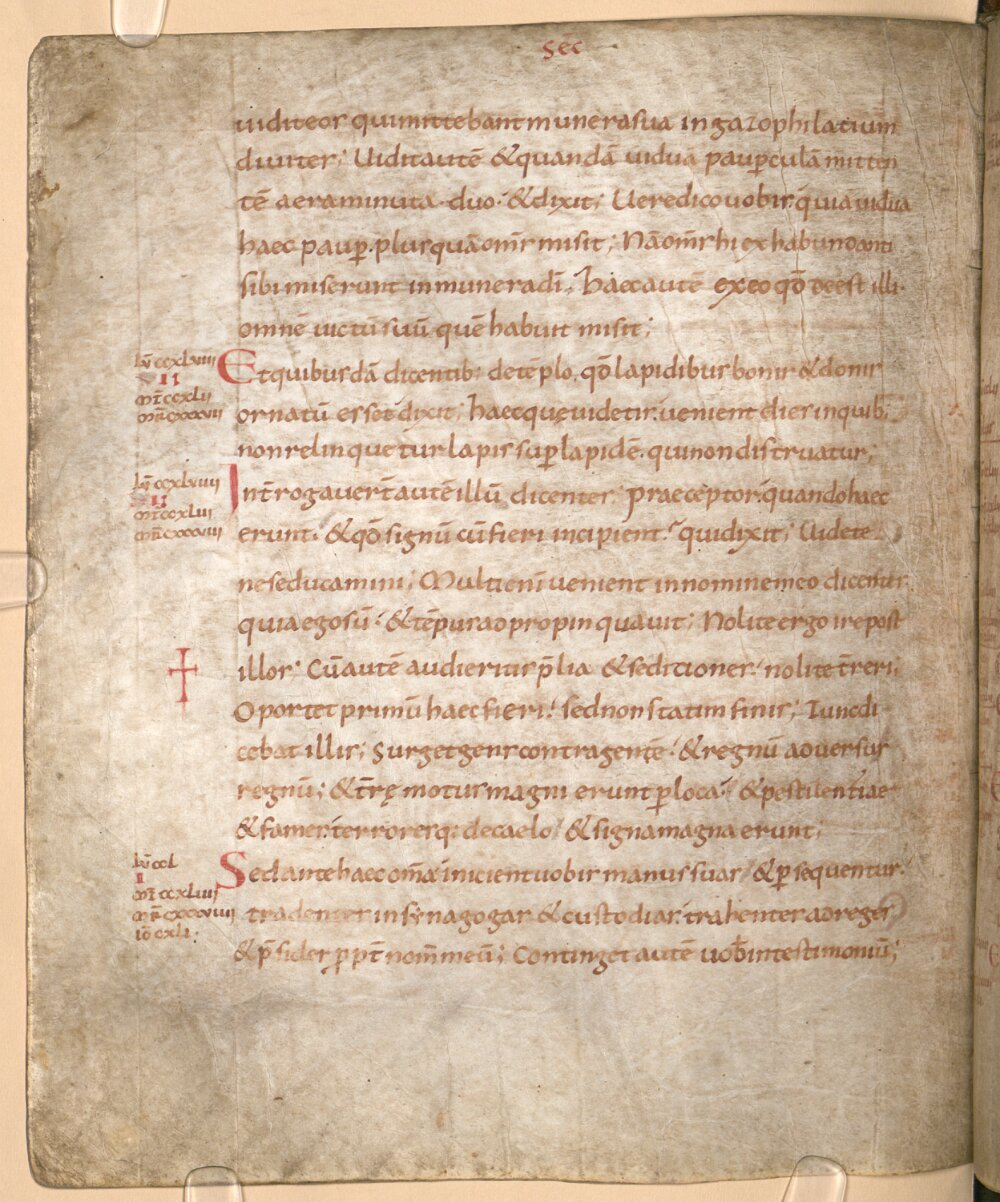 Sec
uidit eos qui mittebant munera sua in gazophilacium
diuites; Uidit autē & quandā uiduā paup̱culā mitten
tē aera minuta duo· & dixit; Uere dico uobis· quia uidua
haec paup̱· plus quā om̄s misit; Nā om̄s hi ex habundanti
sibi miserunt in munera dī· haec autē ex eo qđ deest illi·
omnē uictū suū quē habuit misit;
lū ccxlviiii
Et quibusdā dicentib; de tēplo, qđ lapidibus bonis & donis
II
mt̄ ccxlii
mr̄ cxxxvii
ornatū esset dixit; haec que uidetis· uenient dies in quib;
non relinquetur lapis sup̱ lapidē· qui non distruatur;
lū ccxlviiii
II
Int̄rogauert̄ autē illū dicentes; praeceptor· quando haec
mt̄ ccxliii
mr̄ cxxxviii
erunt· & qđ signū cū fieri incipient? qui dixit; Uidete
ne seducamini; Multi enī uenient in nomine meo dicentes
quia ego sū· & tēpus adpropinquauit; Nolite ergo ire post
illos· Cū autē audieritis p̄lia & seditiones· nolite t̄reri;
Oportet primū haec fieri· sed non statim finis; Tunc di
cebat illis; Surget gens contra gentē· & regnū aduersus
regnū; & t̄rę motus magni erunt p̱ loca· & pestilentiae
& fames· terroresq; de caelo· & signa magna erunt;
lū ccl
I
Sed ante haec om̄a inicient uobis manus suas· & p̱sequentur·
mt̄ ccxliiii
mr̄ cxxxviiii
tradentes in synagogas & custodias· trahentes ad reges
iō cxli·
& p̄sides p̱pt̄ nom̄ meū; Continget autē uob̄ in testimoniū;